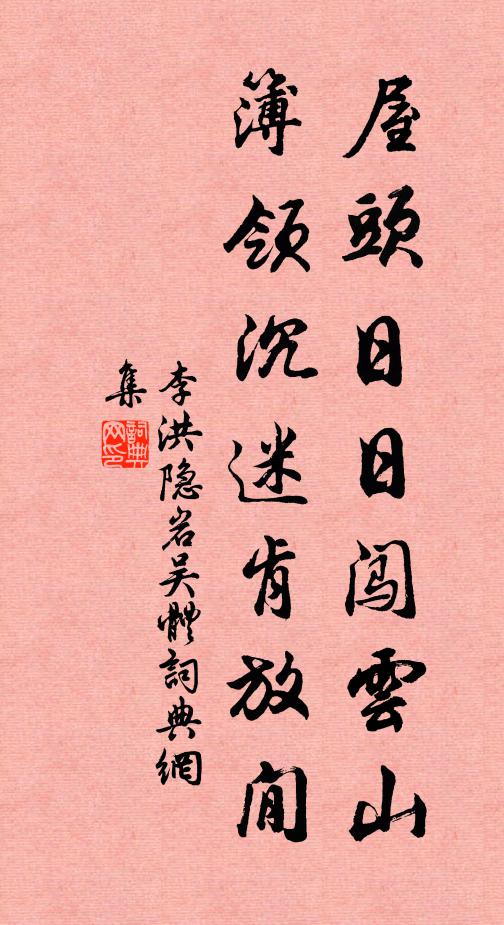 屋頭日日闯雲山
簿领沉迷肯放閒
李洪隐岩吴體詞典網
集
詞典网印